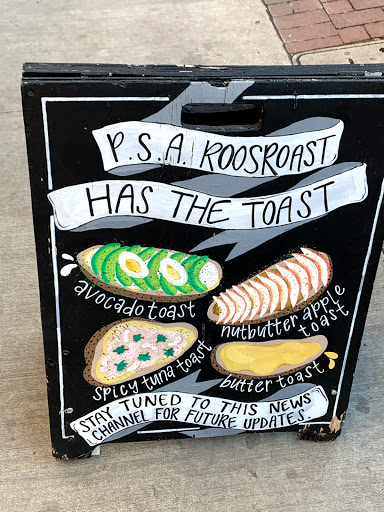 P.S.A. ROOSROAST
HAS THE TOAST
avocado toast
nutbutter apple
toast
spicy tuna toast
butter toast
STAY TUNED TO THIS NEWS
CHANNEL FOR FUTURE UPDATES.